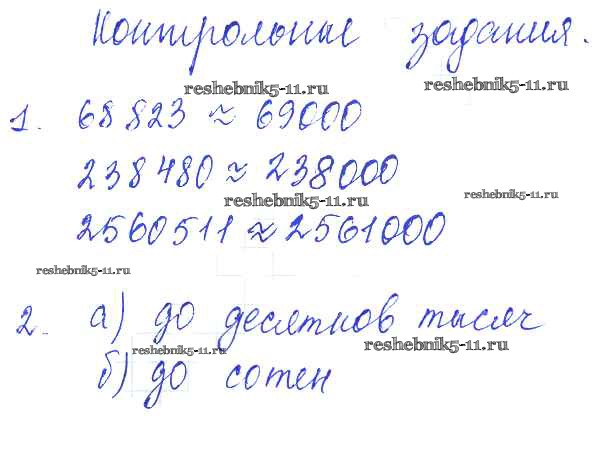 Контрольные задания.
reshebnik5-11.ru reshebnik5-11.ru
1. 68823 ≈ 69000
238480 ≈ 238000
reshebnik5-11.ru reshebnik5-11.ru
2560511 ≈ 2561000
reshebnik5-11.ru
2. а) до десятков тысяч
reshebnik5-11.ru reshebnik5-11.ru
б) до сотен